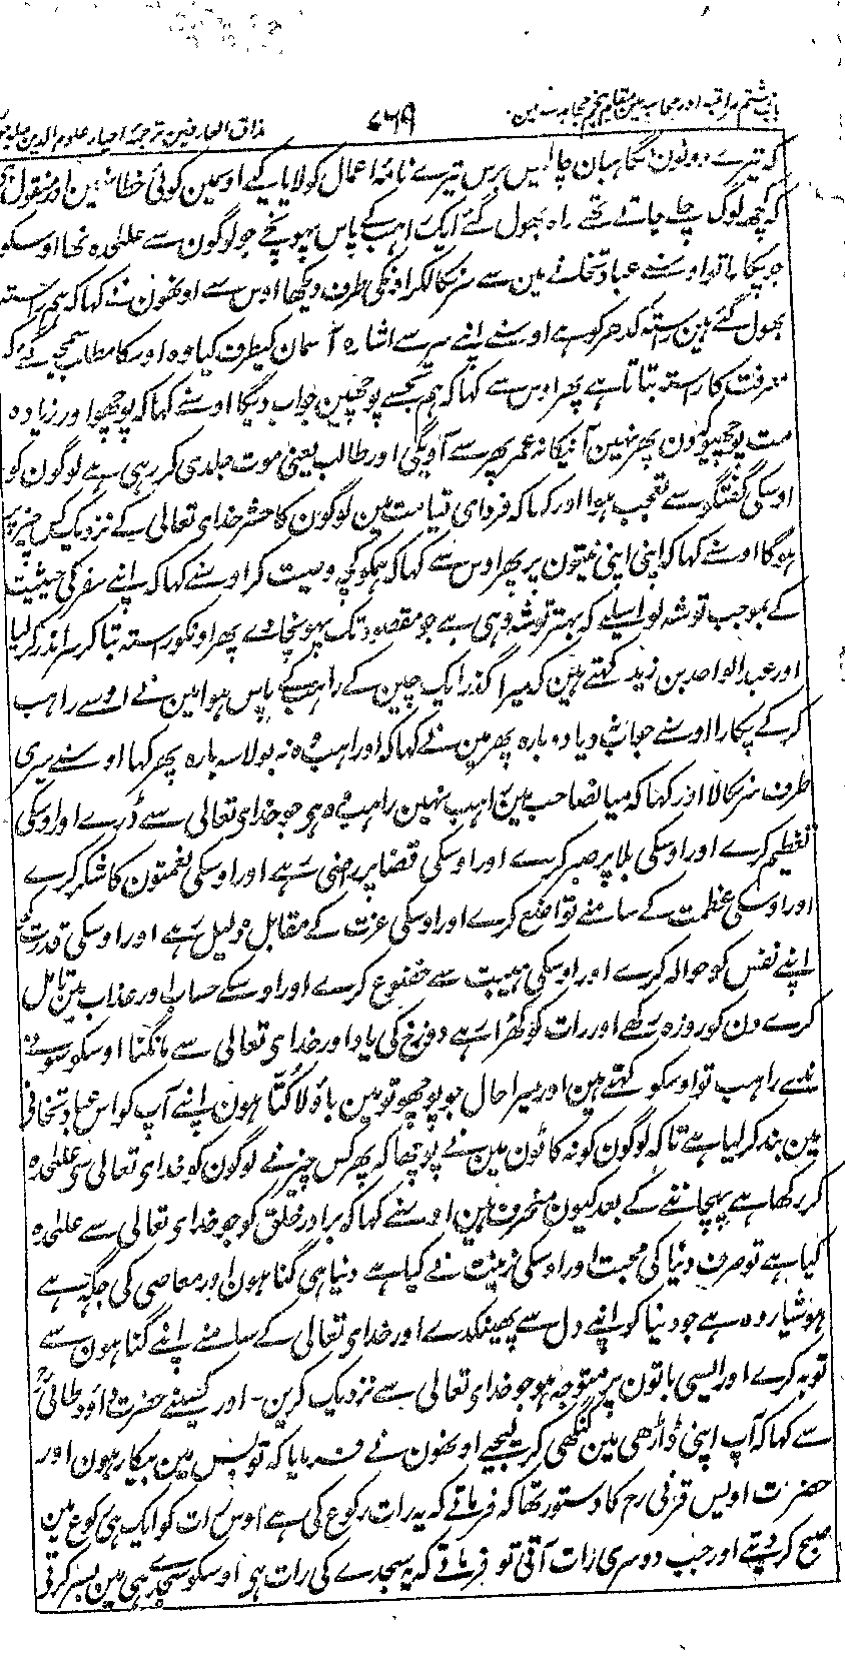 باب ہشتم مراقبہ اور محاسبہ مین مقام پنجم مجاہدہ مین ۷۶۹ مذاق العارفین ترجمۂ احیاء علوم الدین جلد
کہ تیرے دونون نگاہبان چالیس برس تیرے نامۂ اعمال کو لایا کیے اوسمین کوئی خطا نہین اور منقول ہی
کہ کچھ لوگ چلے جاتے تھے راہ بھول گئے ایک راہب کے پاس پہونچے جو لوگون سے علٰحدہ تھا اوسکو
جو پکارا تو اوسنے عبادتخانے مین سے سر نکالکر اونکی طرف دیکھا اوس سے اونھون نے کہا کہ ہم راستہ
بھول گئے ہین راستہ کدھر کو ہے اوسنے اپنے سر سے اشارہ آسمان کیطرف کیا وہ اوسکا مطلب سمجھ گئے کہ
معرفت کا راستہ بتاتا ہے پھر اوس سے کہا کہ ہم تجھسے پوچھین جواب دیگا اوسنے کہا کہ پوچھو اور زیادہ
مت پوچھیو کہ دن پھر نہین آئیگا نہ عمر پھر سے آویگی اور طالب یعنی موت جلدی کر رہی ہے لوگون کو
اوسکی گفتگو سے تعجب ہوا اور کہا کہ فردای قیامت مین لوگون کا حشر خدای تعالی کے نزدیک کس چیز پر
ہوگا اوسنے کہا کہ اپنی اپنی نیتون پر پھر اوس سے کہا کہ ہمکو کچھ وصیت کر اوسنے کہا کہ اپنے سفر کی حیثیت
کے بموجب توشہ لو اسلیے کہ بہتر توشہ وہی ہے جو مقصود تک پہونچا دے پھر اونکو راستہ بتا کر سر اندر کر لیا
اور عبد الواحد بن زید کہتے ہین کہ میرا گذر ایک چین کے راہب کے پاس ہوا مین نے اوسے راہب
کرکے پکارا اوسنے جواب نہ دیا دوبارہ پھر مین نے کہا کہ اور راہب وہ نہ بولا سہ بارہ پھر کہا اوسنے میری
طرف سر نکالا اور کہا کہ میانصاحب مین راہب نہین راہب وہ ہی جو خدای تعالی سے ڈرے اور اوسکی
تعظیم کرے اور اوسکی بلا پر صبر کرے اور اوسکی قضا پر راضی رہے اور اوسکی نعمتون کا شکر کرے
اور اوسکی عظمت کے سامنے تواضع کرے اور اوسکی عزت کے مقابل ذلیل رہے اور اوسکی قدرت کو
اپنے نفس کو حوالہ کرے اور اوسکی ہیبت سے خضوع کرے اور اوسکے حساب اور عذاب مین تامل
کرے دن کو روزہ رکھے اور رات کو کھڑا رہے دوزخ کی یاد اور خدای تعالی سے مانگنا اوسکو سونے نہ
دے راہب تو اوسکو کہتے ہین اور میرا حال جو پوچھو تو مین باؤلا کتا ہون اپنے آپ کو اس عبادتخانے
مین بند کر لیا ہے تاکہ لوگون کو نہ کاٹون مین نے پوچھا کہ پھر کس چیز نے لوگون کو خدای تعالی سی علٰحدہ
کر رکھا ہے پہچاننے کے بعد کیون منحرف ہین اوسنے کہا کہ برادر خلق کو جو خدای تعالی سے علٰحدہ
کیا ہے تو صرف دنیا کی محبت اور اوسکی زینت نے کیا ہے دنیا ہی گناہون اور معاصی کی جگہ ہے
ہوشیار وہ ہے جو دنیا کو اپنے دل سے پھینکدے اور خدای تعالی کے سامنے اپنے گناہون سے
توبہ کرے اور ایسی باتون پر متوجہ ہو جو خدای تعالی سے نزدیک کرین ۔ اور کسینے حضرت داؤد طائی رح
سے کہا کہ آپ اپنی ڈاڑھی مین کنگھی کر لیجیے اونھون نے فرمایا کہ تو بس مین بیکار ہون اور
حضرت اویس قرنی رح کا دستور تھا کہ فرماتے کہ یہ رات رکوع کی ہے اوس رات کو ایک ہی رکوع مین
صبح کر دیتے اور جب دوسری رات آتی تو فرماتے کہ یہ سجدے کی رات ہو اوسکو سجدے ہی مین بسر کرتے